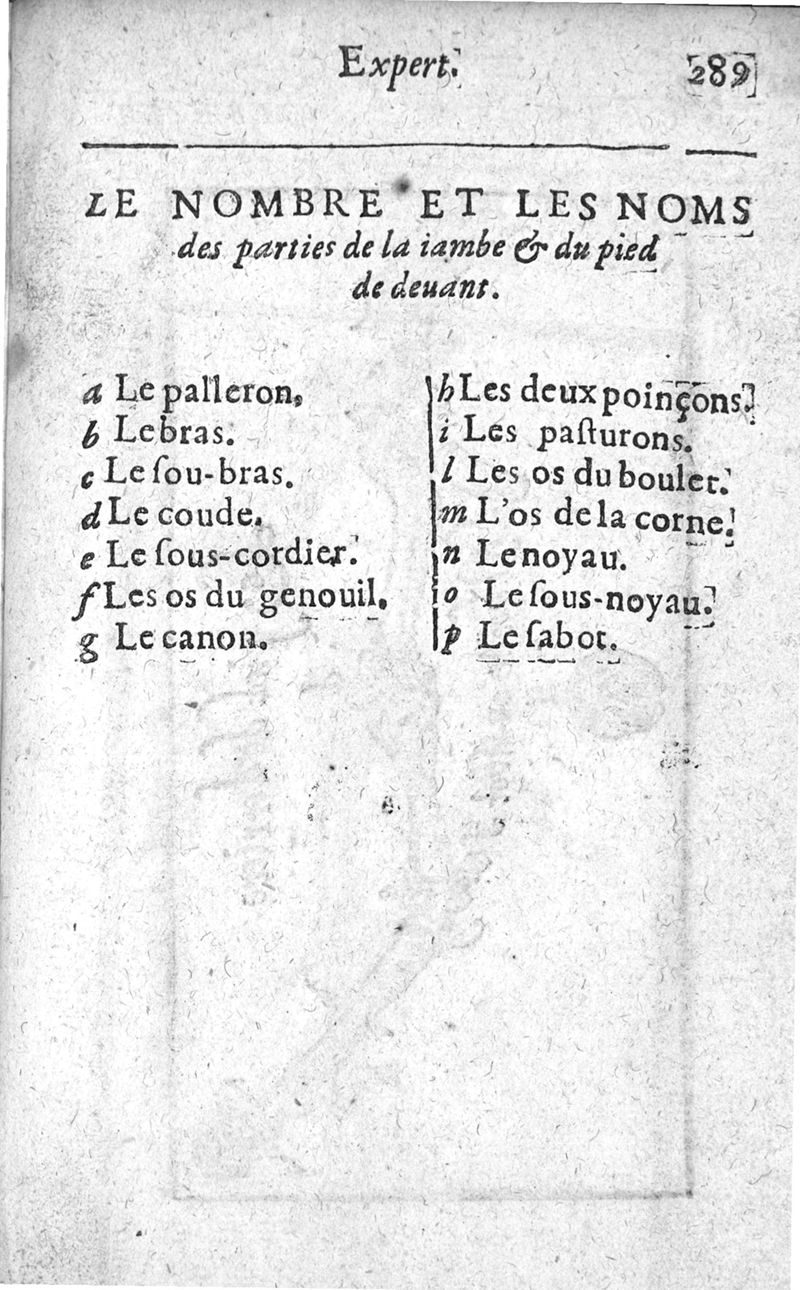 Expert.
289
LE NOMBRE ET LES NOMS
des parties de la iambe & du pied
de deuant.
a Le palleron.
b Le bras.
c Le ſou-bras.
d Le coude.
e Le ſous-cordier.
f Les os du genouil.
g Le canon.
h Les deux poinçons.
i Les paſturons.
l Les os du boulet.
m L'os de la corne.
n Le noyau.
o Le ſous-noyau.
p Le ſabot.